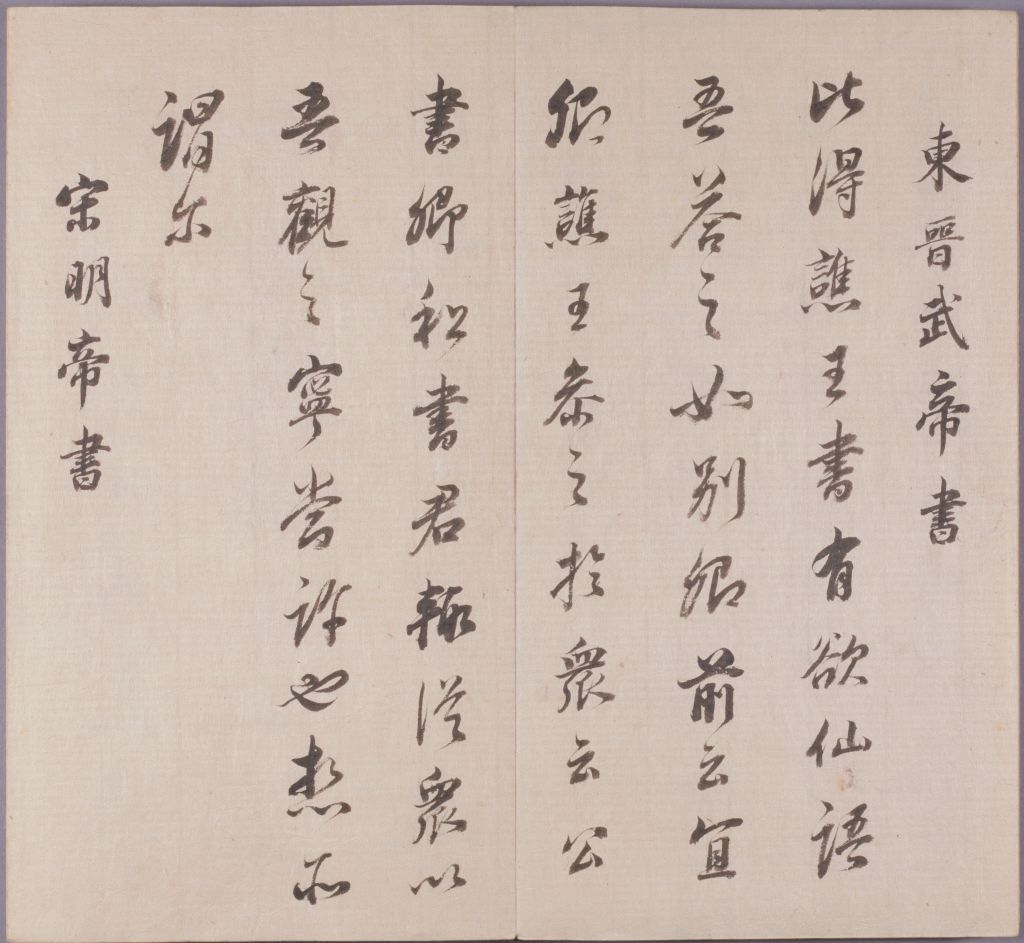 東晉武帝書
比得譙王書有欲仙語
吾答之如別卿前云宜
卿譙王恭之於眾云公
書卿和書君輙從眾以
吾觀之寧當許也想不
謂尒
宋明帝書